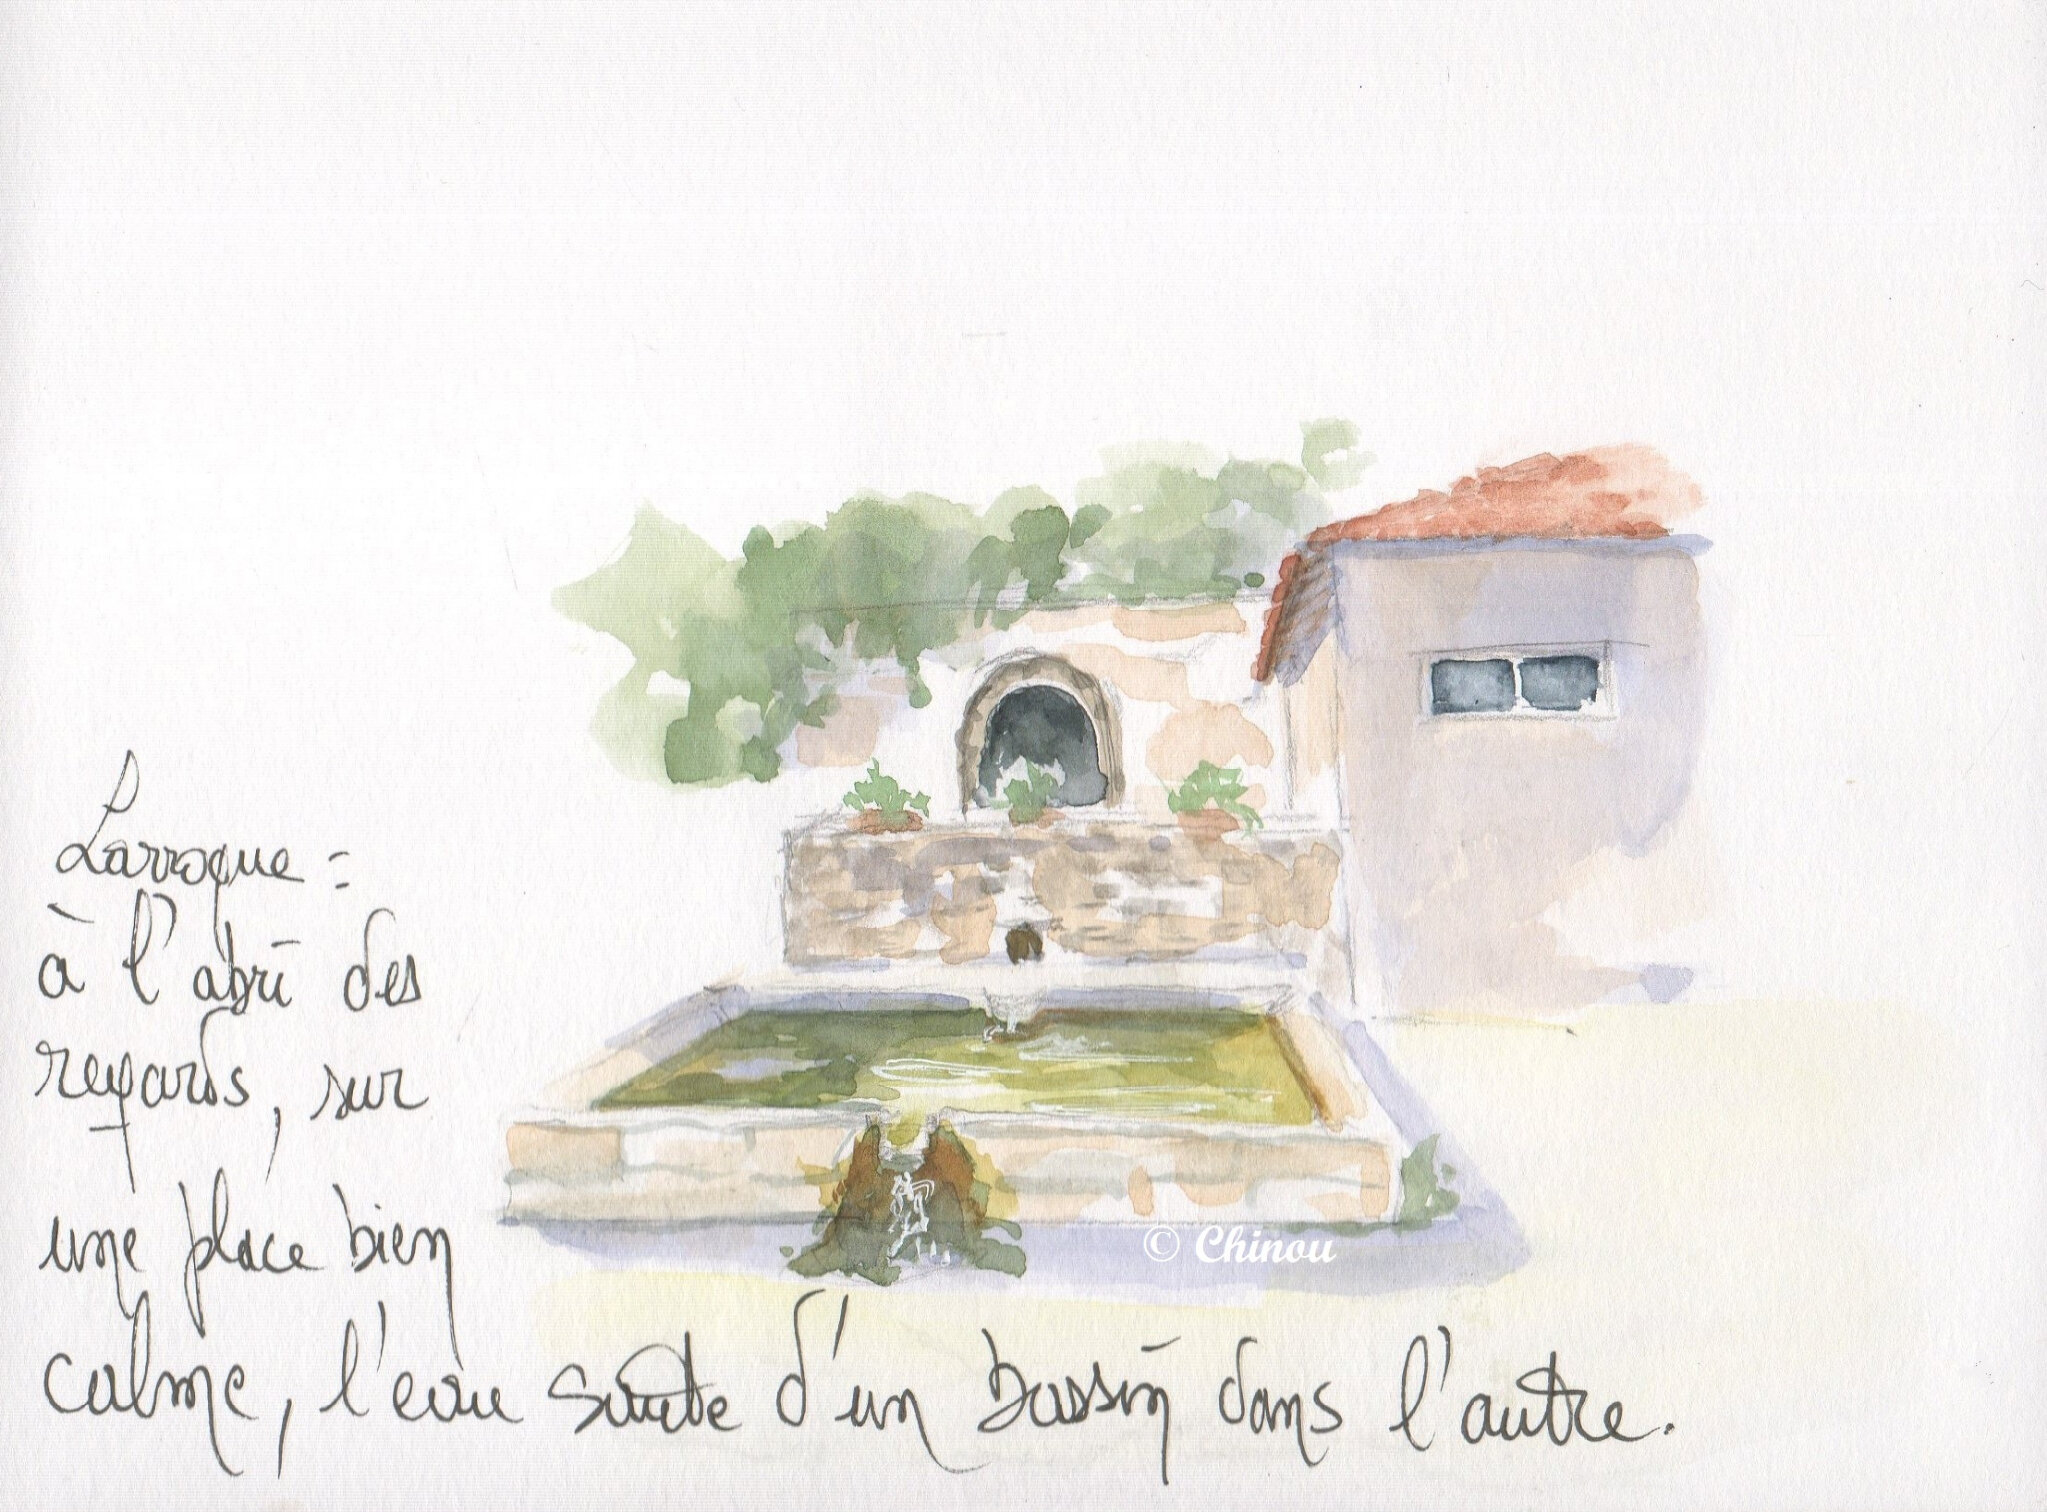 Larroque :
à l'abri des
regards, sur
une place bien
calme, l'eau saute d'un bassin dans l'autre.
© Chinou